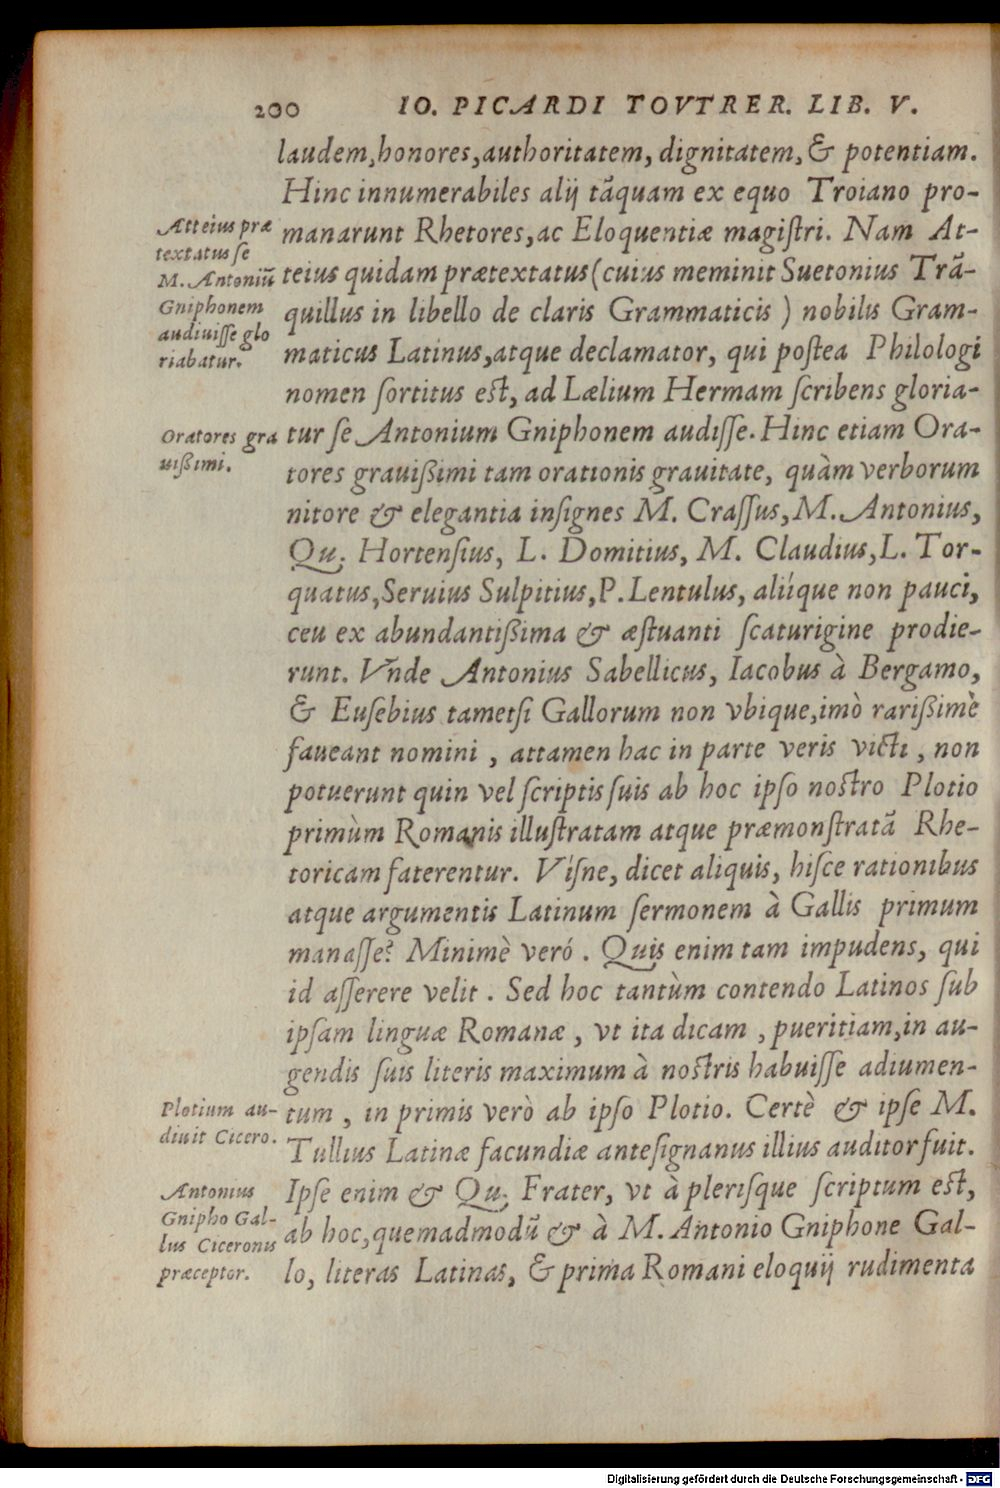 200 IO. PICARDI TOVTRER. LIB. V.
laudem, honores, authoritatem, dignitatem, & potentiam.
Hinc innumerabiles alij tãquam ex equo Troiano pro-
manarunt Rhetores, ac Eloquentiæ magiſtri. Nam At-
teius quidam prætextatus (cuius meminit Suetonius Trã-
quillus in libello de claris Grammaticis) nobilis Gram-
maticus Latinus, atque declamator, qui poſtea Philologi
nomen ſortitus eſt, ad Lælium Hermam ſcribens gloria-
tur ſe Antonium Gniphonem audiſſe. Hinc etiam Ora-
tores grauißimi tam orationis grauitate, quàm verborum
nitore & elegantia inſignes M. Craſſus, M. Antonius,
Qu. Hortenſius, L. Domitius, M. Claudius, L. Tor-
quatus, Seruius Sulpitius, P. Lentulus, aliíque non pauci,
ceu ex abundantißima & æſtuanti ſcaturigine prodie-
runt. Vnde Antonius Sabellicus, Iacobus à Bergamo,
& Euſebius tametſi Gallorum non vbique, imò rarißimè
faueant nomini, attamen hac in parte veris victi, non
potuerunt quin vel ſcriptis ſuis ab hoc ipſo noſtro Plotio
primùm Romanis illuſtratam atque præmonſtratã Rhe-
toricam faterentur. Víſne, dicet aliquis, hiſce rationibus
atque argumentis Latinum ſermonem à Gallis primum
manaſſe? Minimè veró. Quis enim tam impudens, qui
id aſſerere velit. Sed hoc tantùm contendo Latinos ſub
ipſam linguæ Romanæ, vt ita dicam, pueritiam, in au-
gendis ſuis literis maximum à noſtris habuiſſe adiumen-
tum, in primis verò ab ipſo Plotio. Certè & ipſe M.
Tullius Latinæ facundiæ anteſignanus illius auditor fuit.
Ipſe enim & Qu. Frater, vt à pleriſque ſcriptum eſt,
ab hoc, quemadmodũ & à M. Antonio Gniphone Gal-
lo, literas Latinas, & prima Romani eloquij rudimenta
Atteius præ
textatus ſe
M. Antoniũ
Gniphonem
audiuiſſe glo
riabatur.
Oratores gra
uißimi.
Plotium au-
diuit Cicero.
Antonius
Gnipho Gal-
lus Ciceronis
præceptor.
Digitalisierung gefördert durch die Deutsche Forschungsgemeinschaft - DFG